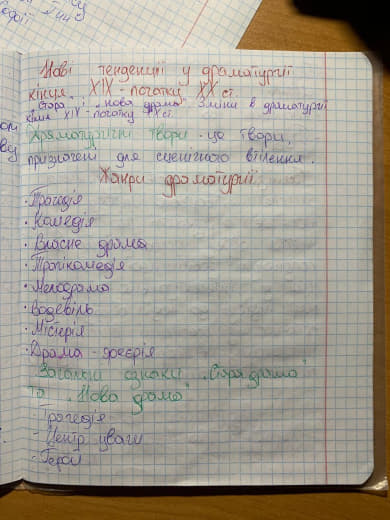 Нові тенденції у драматургії
кінця XIX - початку XX ст.
"Стара" і "нова драма" Зміни в драматургії
кінця XIX - початку XX ст.
Драматургічні твори - це твори,
призначені для сценічного втілення.
Жанри драматургії
· Трагедія
· Комедія
· Власне драма
· Трагікомедія
· Мелодрама
· Водевіль
· Містерія
· Драма - феєрія
Загальні ознаки "Стара драма"
та "Нова драма"
- Трагедія
- Центр уваги
- Герої